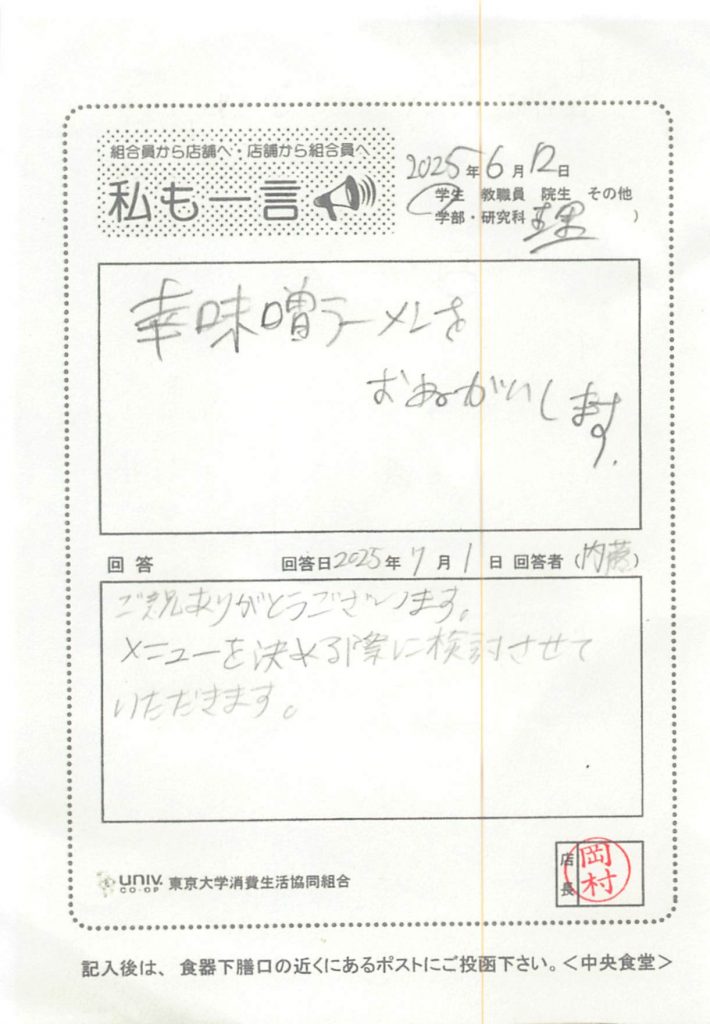 組合員から店舗へ・店舗から組合員へ
私も一言
2025年6月12日
学生 教職員 院生 その他
学部・研究科 理 )
幸味噌ラーメンを
おねがいします.
回答 回答日2025年7月1日 回答者(内藤)
ありがとうございます。
メニューを決める際に検討させて
いただきます。
UNIV. CO-OP 東京大学消費生活協同組合
店長 岡村
記入後は、食器下膳口の近くにあるポストにご投函下さい。<中央食堂>